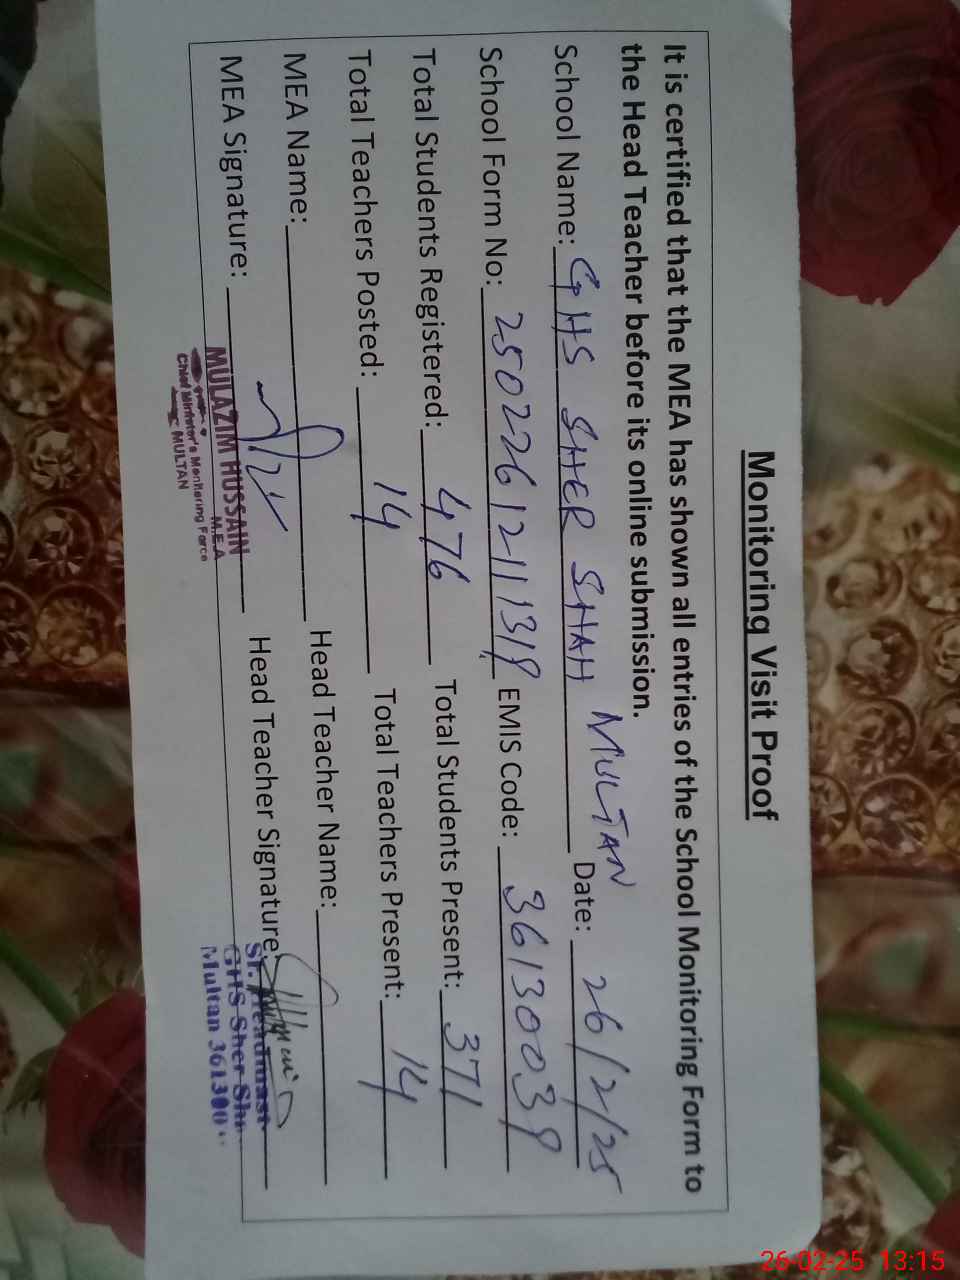 Monitoring Visit Proof
It is certified that the MEA has shown all entries of the School Monitoring Form to
the Head Teacher before its online submission.
School Name: GHS SHER SHAH MULTAN Date: 26/2/25
School Form No: EMIS Code: 36130039
Total Students Registered: 476 Total Students Present: 371
Total Teachers Posted: 14 Total Teachers Present: 14
MEA Name: Head Teacher Name:
MEA Signature: Head Teacher Signature:
MULAZIM HUSSAIN
M.E.A
Chief Minister's Monitoring Force
MULTAN
GHS Sher
Multan
26-02-25 13:15